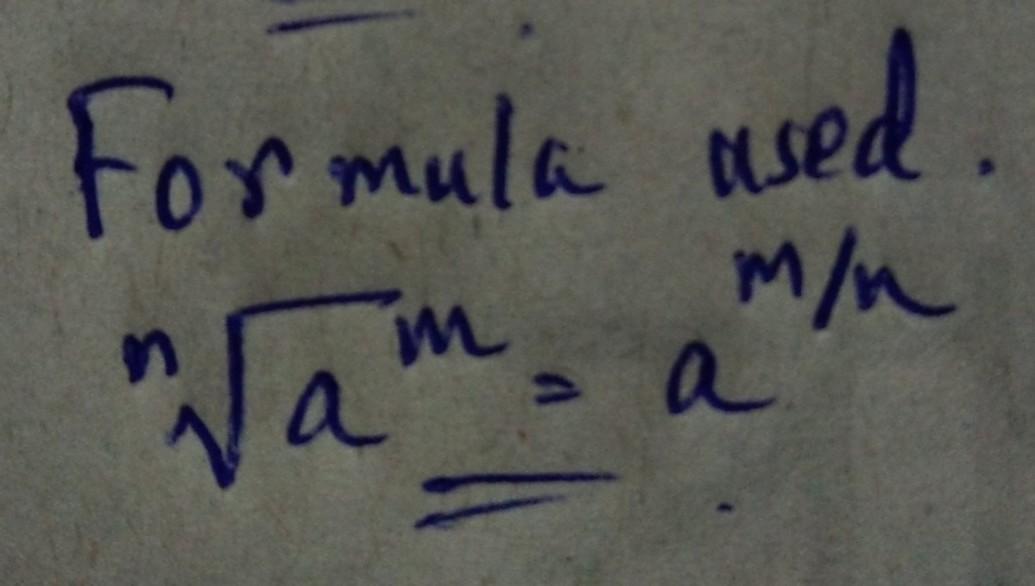 Formula used.
ⁿ√aᵐ = a^m/n